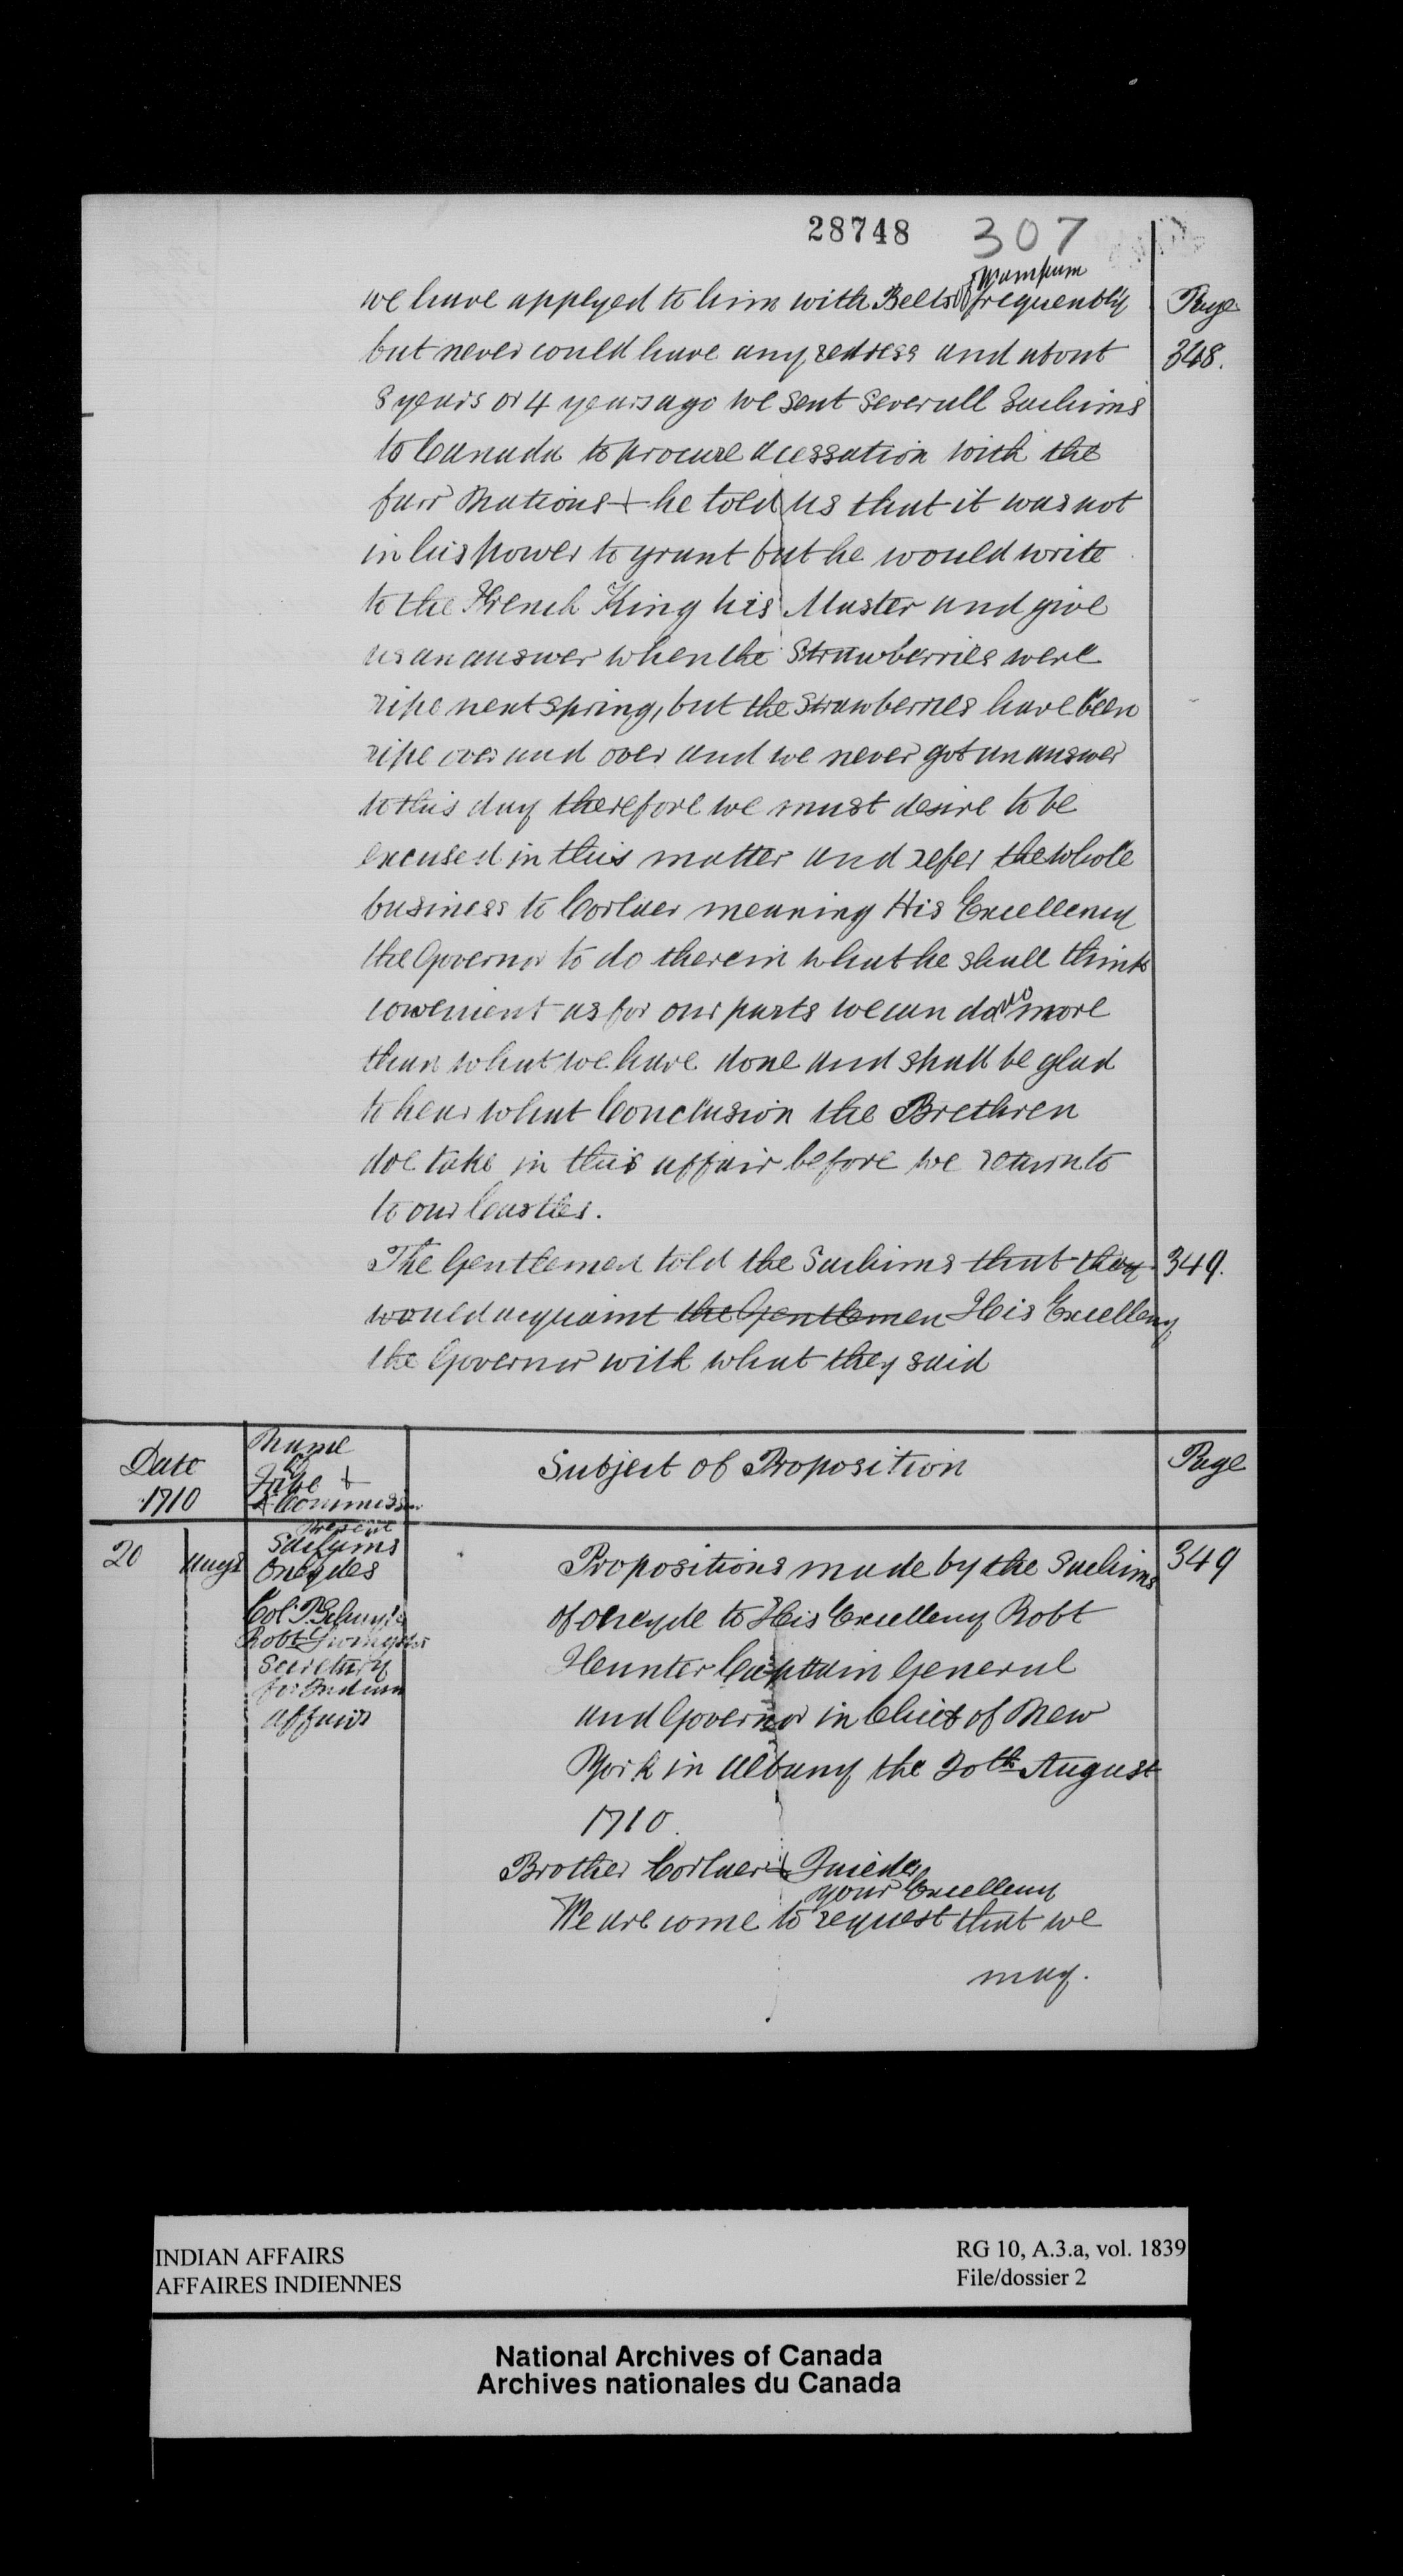 28748 307
we have applyed to him with Belts of wampum frequently
Page
but never could have any redress and about
348.
3 years or 4 years ago we sent severall Sachims
to Canada to procure a cessation with the
farr Nations & he told us that it was not
in his power to grant but he would write
to the French King his Master and give
us an answer when the Strawberries were
ripe next spring, but the strawberries have been
ripe over and over and we never got an answer
to this day therefore we must desire to be
excused in this matter and refer the whole
business to Corlaer meaning His Excellency
the Governor to do therein what he shall think
convenient as for our parts we can do no more
than what we have done and shall be glad
to hear what Conclusion the Brethren
doe take in this affair before we return to
to our Castles.
The Gentlemen told the Sachims that they
349.
would acquaint the Gentlemen His Excellency
the Governor with what they said
Date
1710
Name
of
Tribe &
& Commissr.
Subject of Proposition
Page
20 Augs
Present
Sachims
Oneydes
Col. P. Schuyler
Robt Livingston
Secretary
for Indian
affairs
Propositions made by the Sachims
349
of oneyde to His Excellency Robt
Hunter Captain General
and Governor in Chief of New
York in Albany the 20th August
1710.
Brother Corlaer & Quieder
We are come to your Excellency request that we
may.
INDIAN AFFAIRS
AFFAIRES INDIENNES
RG 10, A.3.a, vol. 1839
File/dossier 2
National Archives of Canada
Archives nationales du Canada